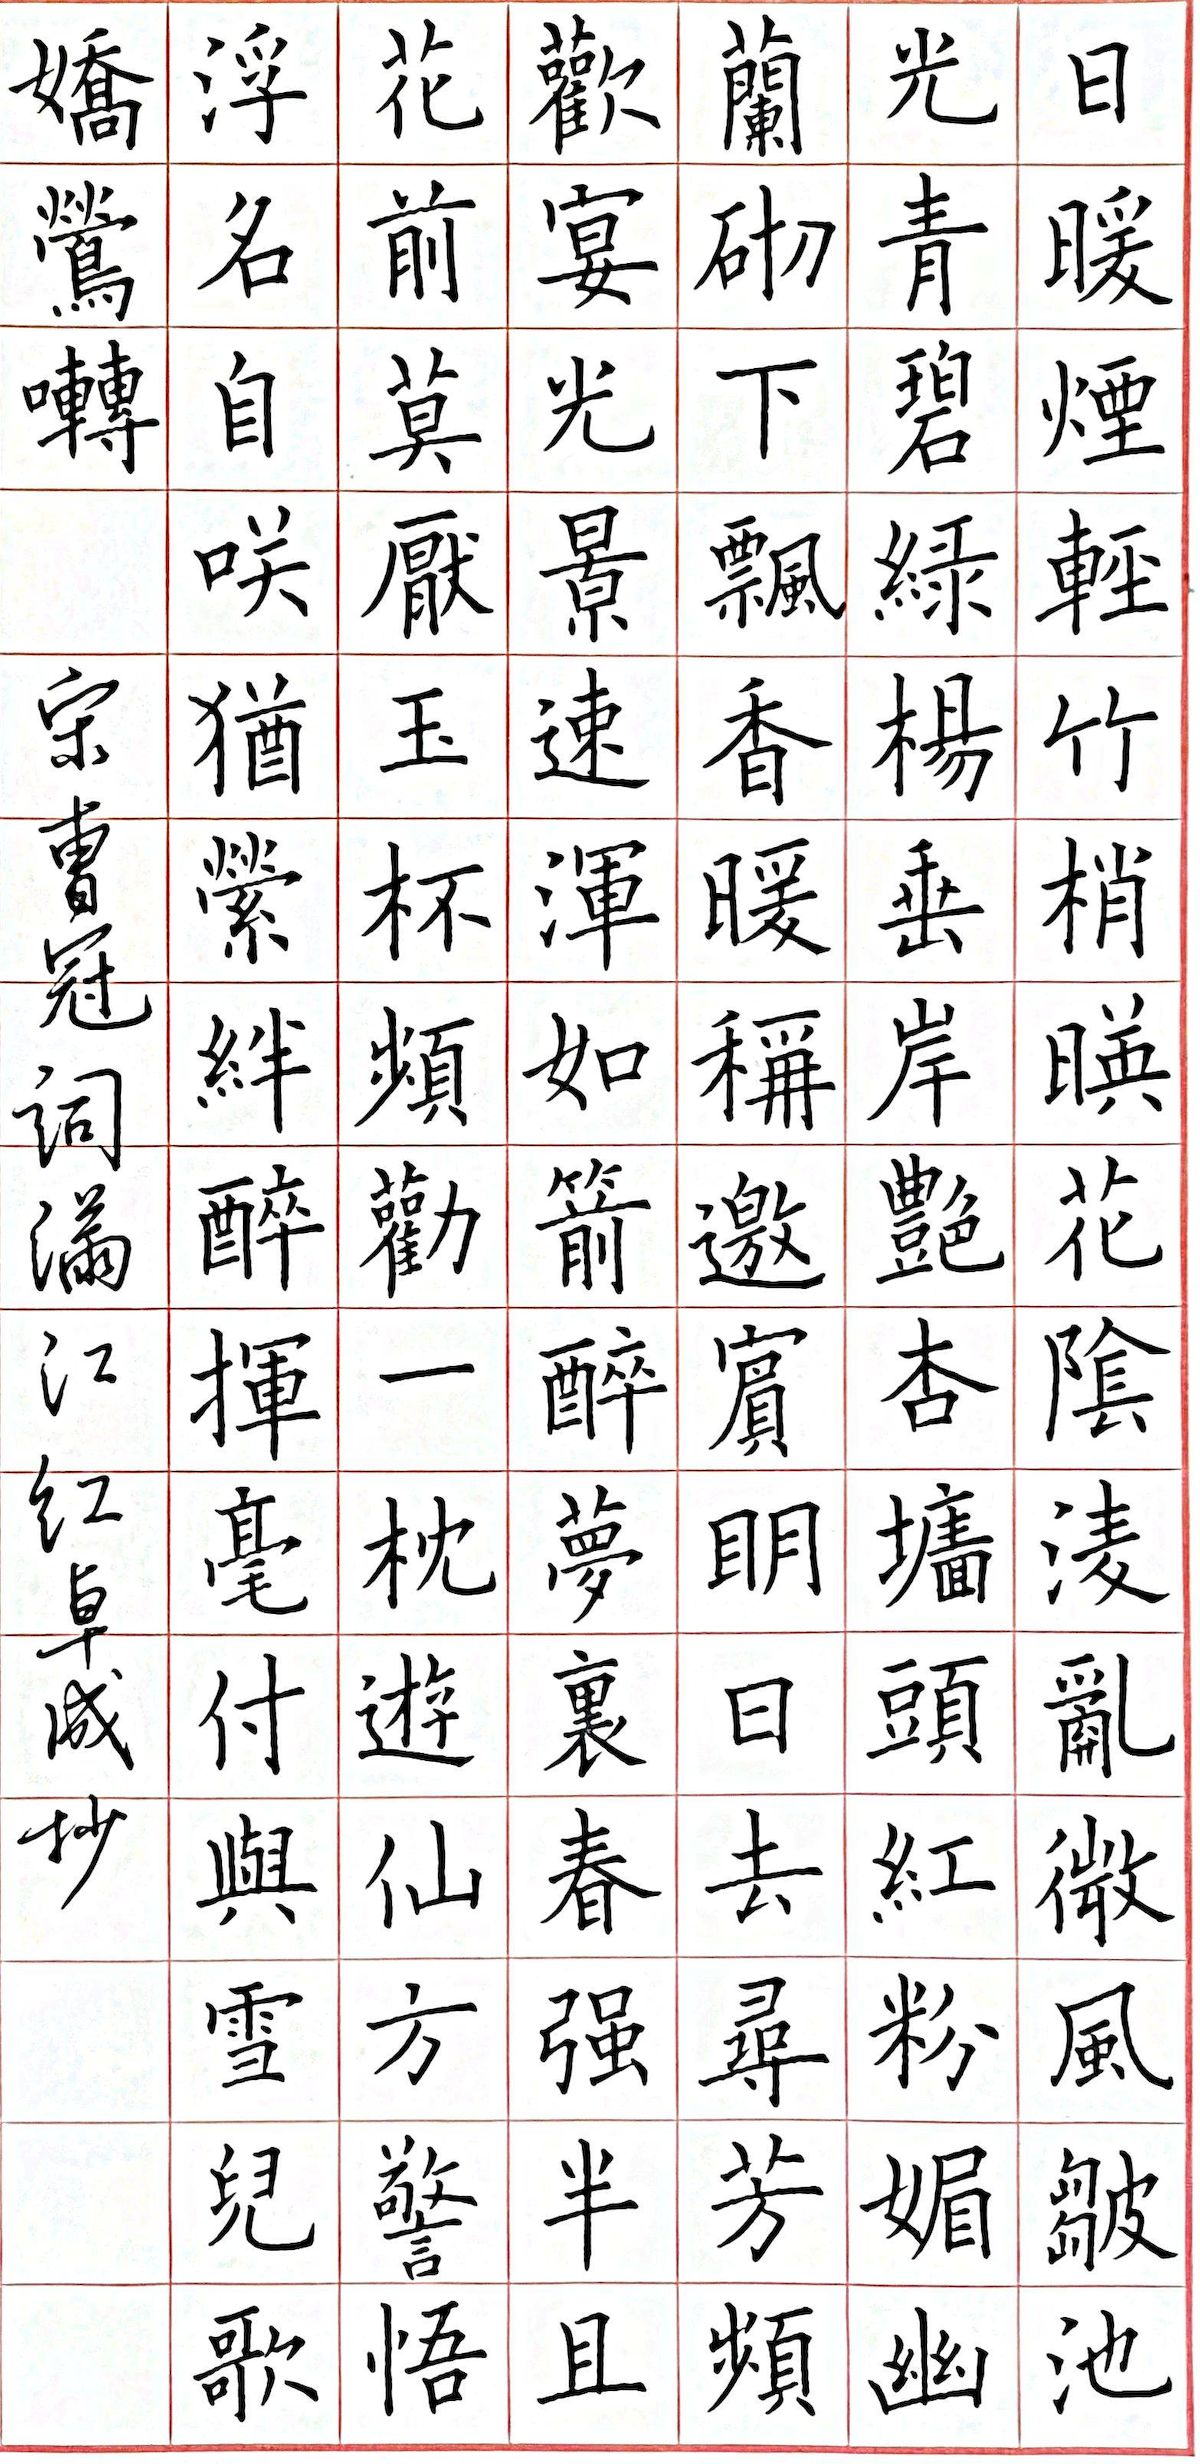 日暖煙輕竹梢暎花陰淩亂微風皺池
光青碧綠楊垂岸艷杏墻頭紅粉媚幽
蘭砌下飄香暖稱邀賓明日去尋芳頻
歡宴光景速渾如箭醉夢裏春强半且
花前莫厭玉杯頻勸一枕遊仙方警悟
浮名自咲猶縈絆醉揮毫付與雪兒歌
嬌鶯囀
宋曹冠詞滿江紅卓成抄